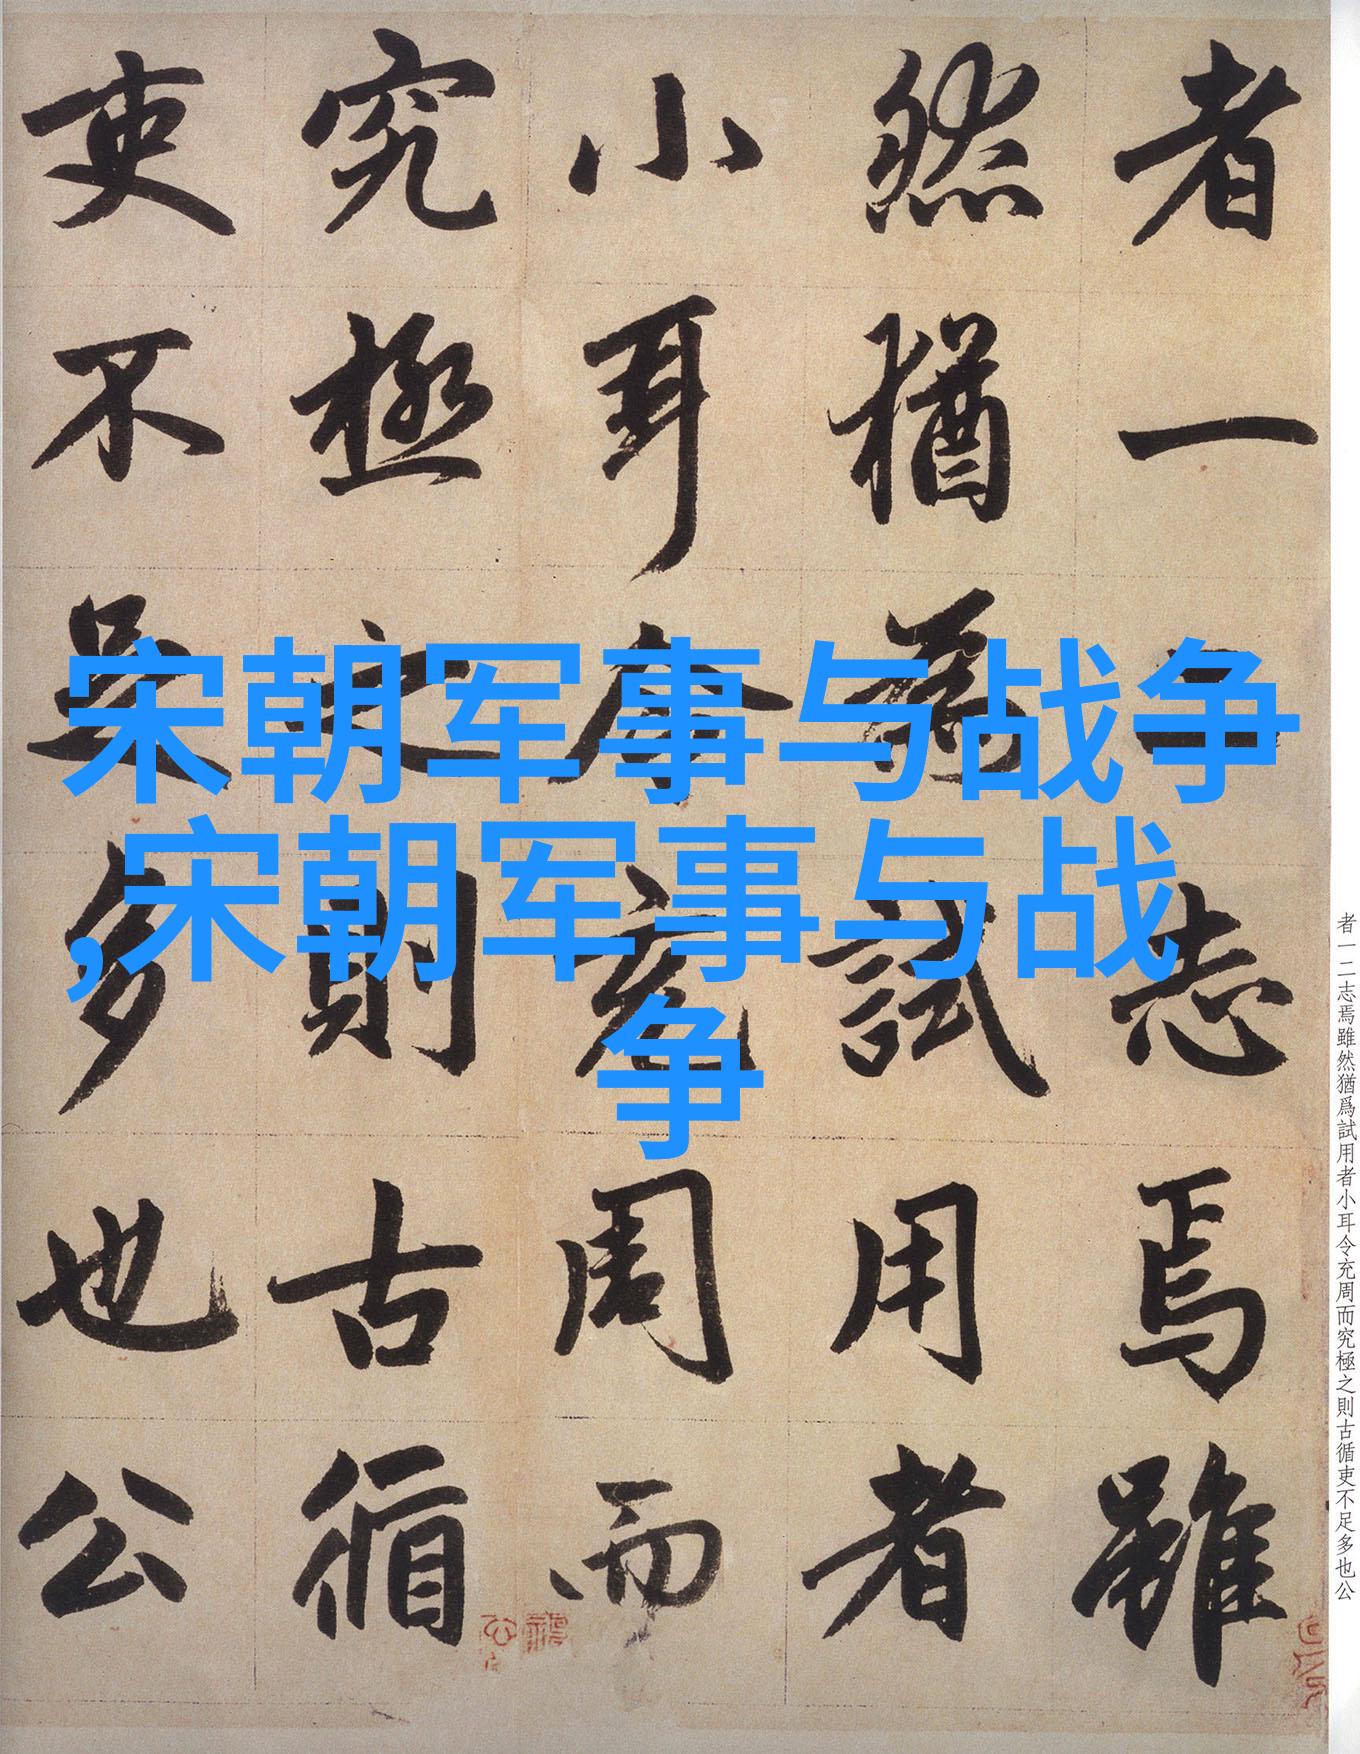 宋朝军事与战争
,宋朝军事与战
争
者一二志焉雖
然猶為試用者
小耳令充周而
究極之則古循
吏不足多也公
者一二志焉雖然猶爲試用者小耳令充周而究極之則古循吏不足多也公